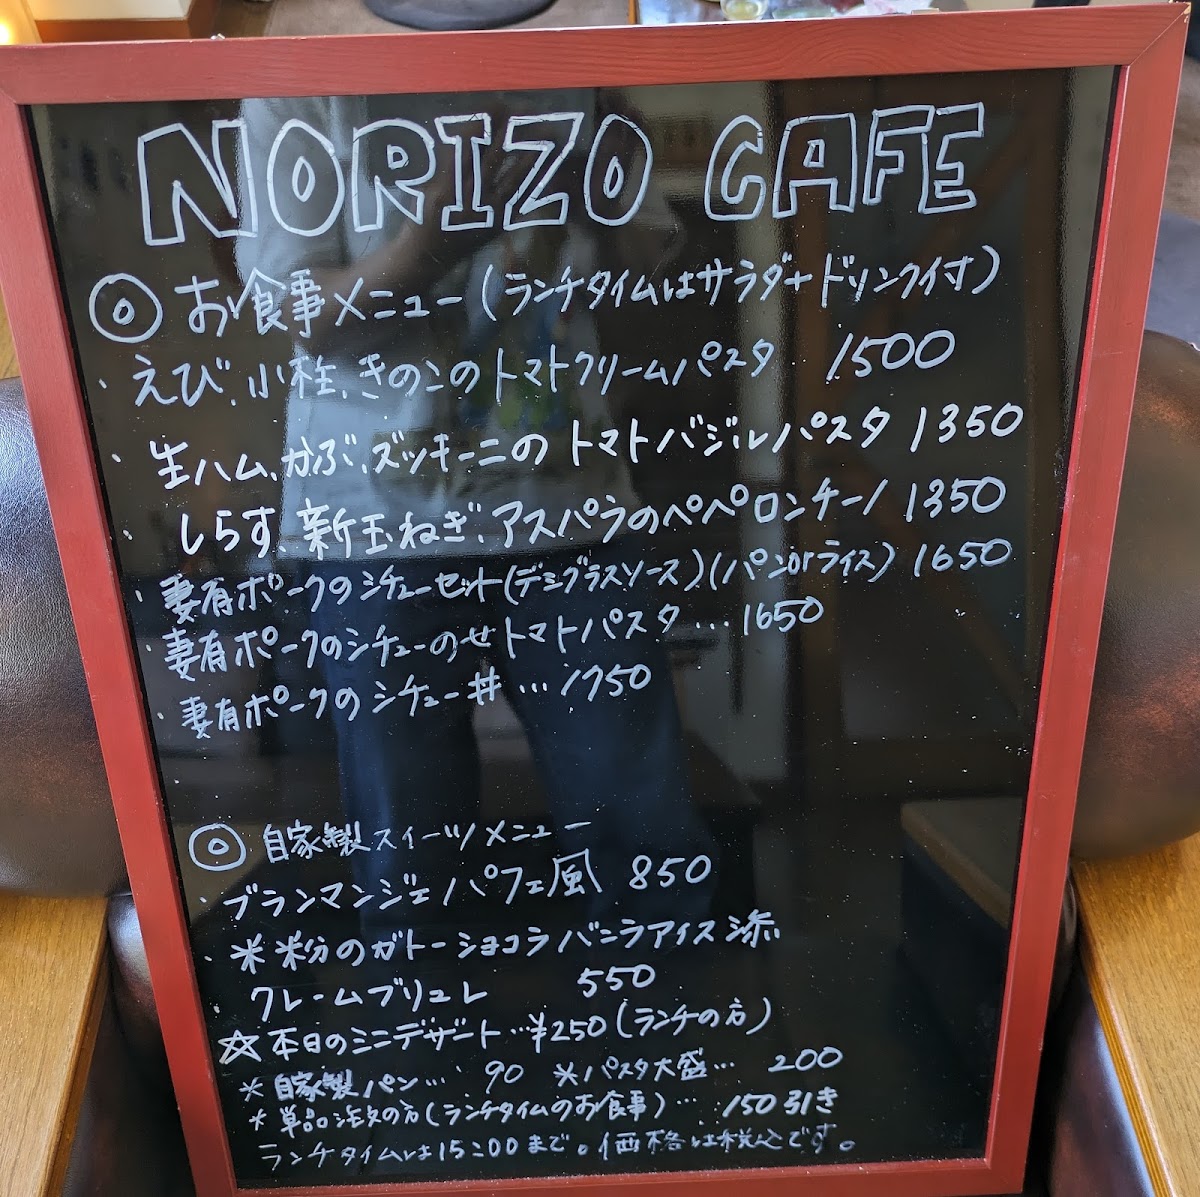 NORIZO CAFE
◎ お食事メニュー(ランチタイムはサラダ+ドリンク付)
・えび、小柱、きのこのトマトクリームパスタ 1500
・生ハム、かぶ、ズッキーニのトマトバジルパスタ 1350
・しらす、新玉ねぎ、アスパラのペペロンチーノ 1350
・妻有ポークのシチューセット(デミグラスソース)(パンorライス) 1650
・妻有ポークのシチューのせトマトパスタ…1650
・妻有ポークのシチュー丼…1750
◎ 自家製スイーツメニュー
・ブランマンジェパフェ風 850
・米粉のガトーショコラバニラアイス添
クレームブリュレ 550
☆本日のミニデザート…¥250(ランチの方)
*自家製パン… 90 *パスタ大盛… 200
*単品注文の方(ランチタイムのお食事)… 150引き
ランチタイムは15:00まで。価格は税込です。